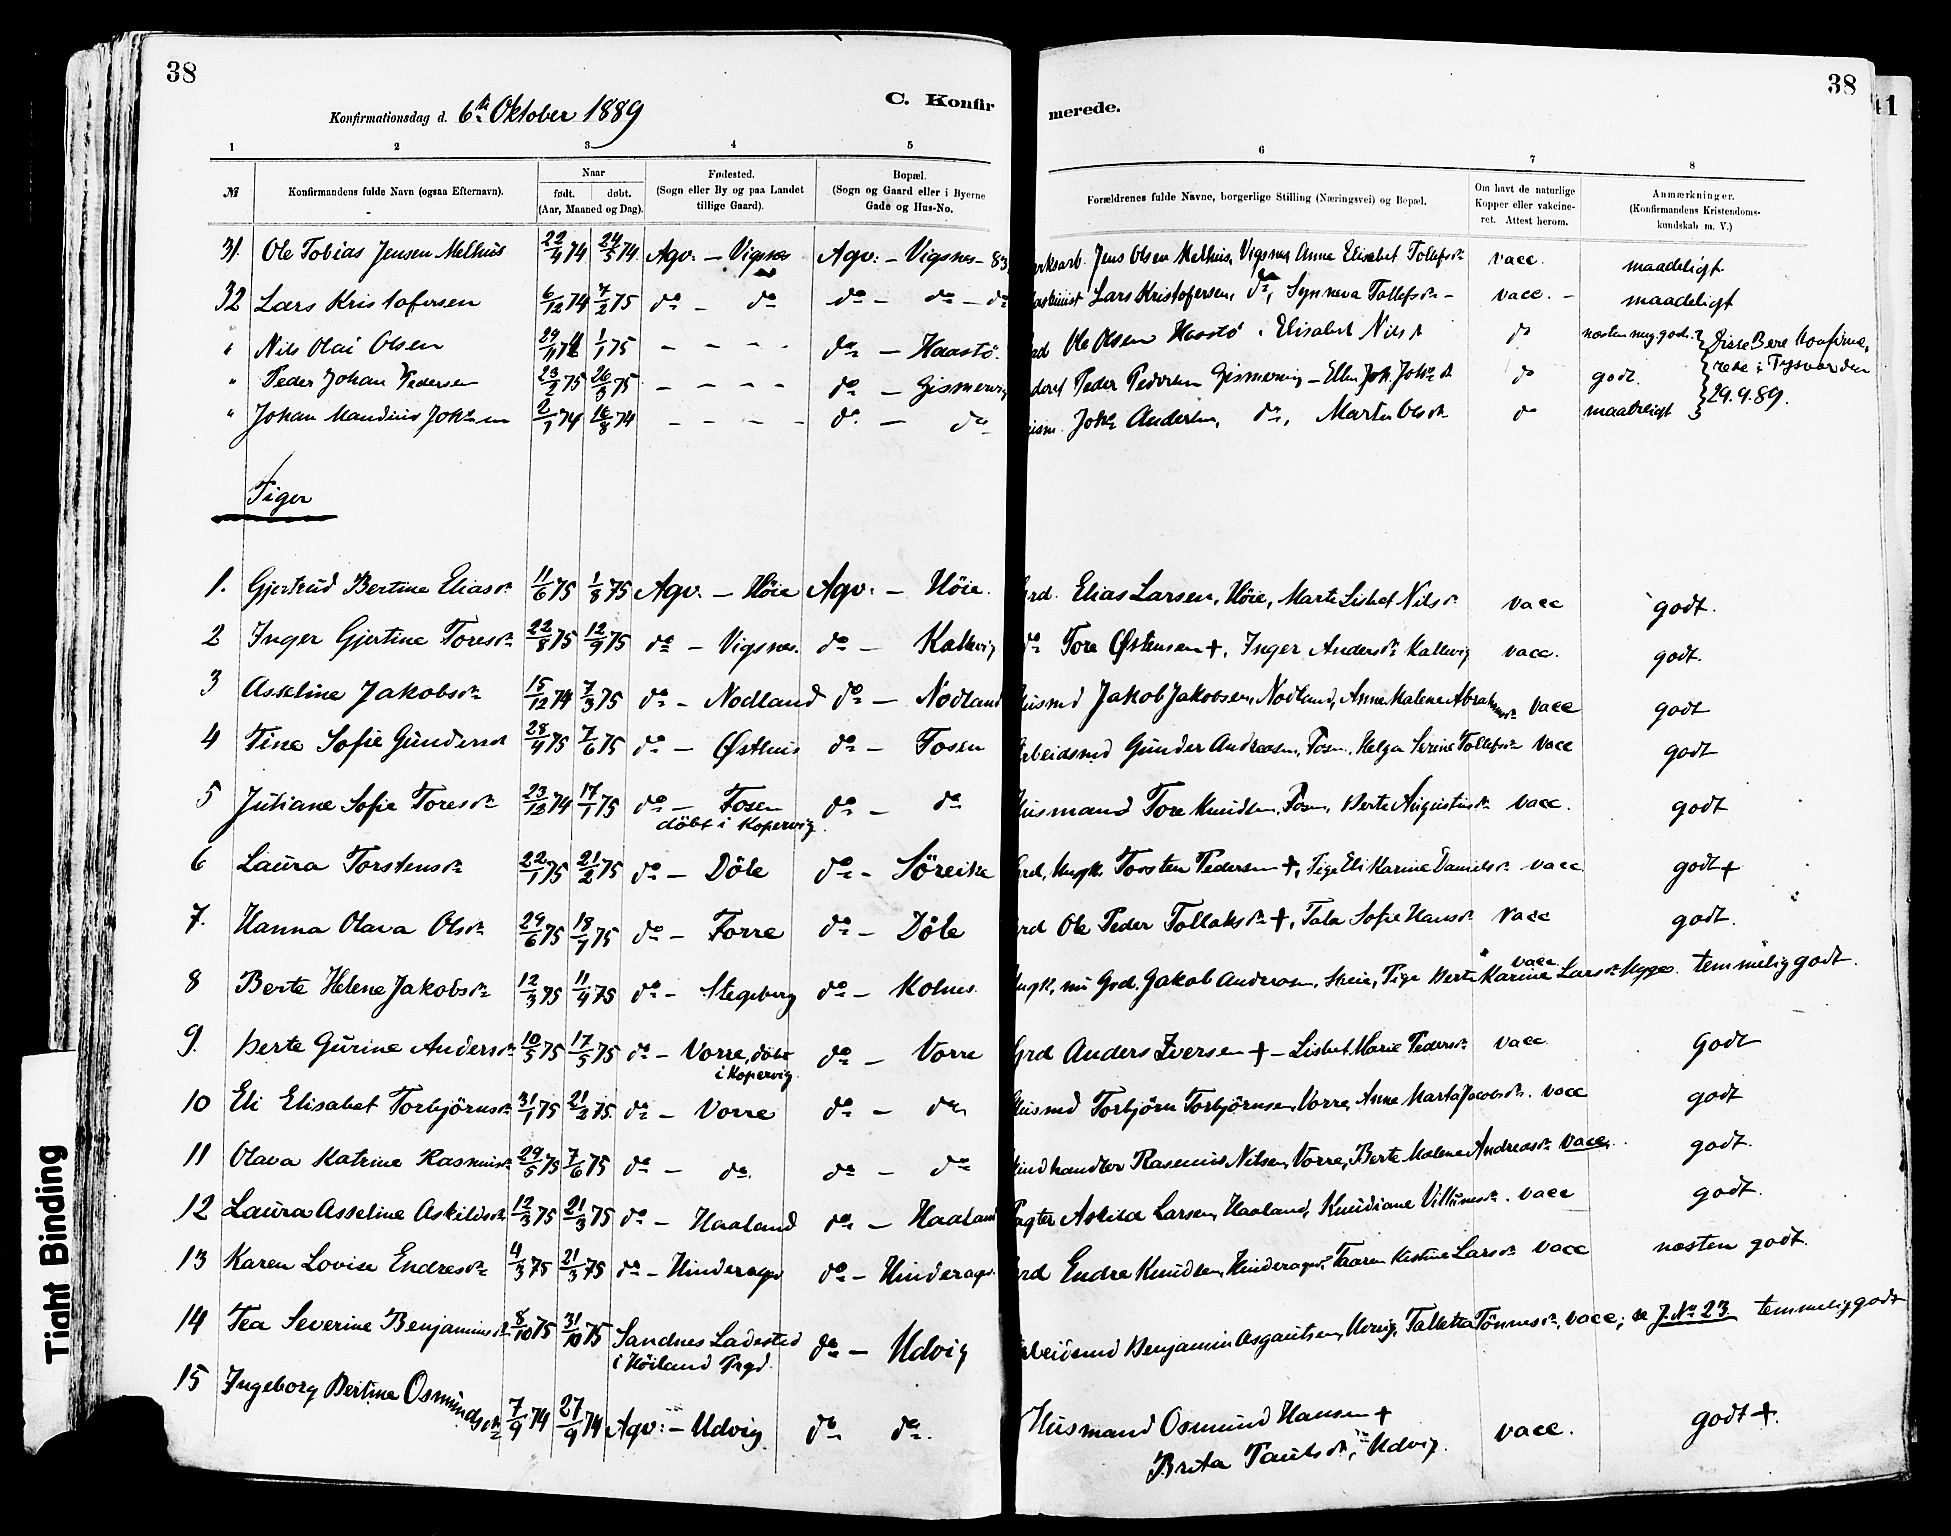 38
38
41
Konfirmationsdag d. 6te Oktober 1889
C. Konfir
merede.
1 2 3 4 5 6 7 8
№
Konfirmandens fulde Navn (ogsaa Efternavn).
Naar
født. døbt.
(Aar, Maaned og Dag).
Fødested.
(Sogn eller By og paa Landet
tillige Gaard).
Bopæl.
(Sogn og Gaard eller i Byerne
Gade og Hus-No.
Forældrenes fulde Navne, borgerlige Stilling (Næringsvei) og Bopæl.
Om havt de naturlige
Kopper eller vakcine-
ret. Attest herom.
Anmærkninger.
(Konfirmandens Kristendoms-
kundskab m. V.)
31. Ole Tobias Jensen Melhus 22/4 74 24/5 74 Agv. – Vigsnes Agv: – Vigsnes – 83 Jens Olsen Melhus, Vigsnes Anne Elisabet Tollefsdr vacc. maadeligt
32 Lars Kristofersen 6/12 74 7/2 75 do – do do – do – do Lars Kristofersen, do, Synneva Tollefsdr – vacc. – maadeligt
" Nils Olai Olsen 1/1 75 – – – – do – Haastø. Ole Olsen Haastø. Elisabet Nilsd do næsten meg. godt. Disse Bere konfirme-
" Peder Johan Pedersen 23/2 75 26/3 75 – – – – do – Peder Pedersen – do godt. rede i Tysvær den
" Johan Mandius Johnsen 2/7 74 16/8 74 – – – – do – do Johs Andersen, do, Marta Olsdr do maadeligt 29.9.89.
Piger
1. Gjertrud Bertine Eliasdr 11/6 75 1/8 75 Agv. – Høie Agv: – Høie. Grd. Elias Larsen, Høie, Marta Lisbet Nilsdr vacc godt.
2 Inger Gjertine Toresdr 22/8 75 12/9 75 do – Vigsnes. do – Kallevig do Tore Østensen +, Inger Andersdr Kallevig vacc. godt.
3 Asseline Jakobsdr 15/12 74 7/3 75 do – Nodland do – Nodland Husmd Jakob Jakobsen, Nodland, Anne Malene Abrahamsdr vacc godt
4 Tine Sofie Gundersdr 28/4 75 7/6 75 do – Østhus do – Fosen Arbeidsmd Gunder Andreasen, Fosen, Helga Serine Tollefsdr vacc godt
5 Juliane Sofie Toresdr 23/12 74 17/1 75 do – Fosen do – do Husmand Tore Knudsen, Fosen, Berte Augustinsdr vacc. godt
døbt i Kopervig.
6 Laura Torstensdr 22/1 75 21/2 75 do – Døle do – Søreike Grd. Ungk. Torsten Pedersen +, Pige Eli Karine Danielsdr vacc godt +
7. Hanna Olava Olsdr 29/6 75 18/7 75 do – Førre do – Døle Grd Ole Peder Tollaksdr +, Tala Sofie Hansdr vacc godt.
8 Berte Helene Jakobsdr 12/3 75 11/4 75 do – Stegeberg do – Kolnes. Ungk, nu Grd. Jakob Andersen, Pige Berte Karine Larsdr vacc. temmelig godt.
9. Berte Gurine Andersdr 10/5 75 17/5 75 do – Vorre, døbt do – Vorre Grd Anders Iversen + – Lisbet Marie Pedersdr vacc godt
i Kopervig.
10 Eli Elisabet Torbjørnsdr 31/1 75 21/2 75 do – Vorre do – do Husmd Torbjørn Torbjørnsen, Vorre, Anne Marta Jacobsdr. vacc godt
11 Olava Katrine Rasmusdr 29/5 75 7/6 75 do – do. do – do Rasmus Nilsen, Vorre, Berte Malene Andreasdr vacc. godt.
12 Laura Asseline Askildsdr 12/3 75 21/3 75 do – Haaland do – Haaland Pagter Askild Larsen, Haaland, Knudiane Villumsdr. vacc godt.
13 Karen Lovise Endresdr 4/3 75 21/3 75 do – Hinderager do – Hinderager Grd Endre Knudsen, Hinderager, Karen Kristine Larsdr vacc næsten godt.
14 Tea Severine Benjaminsdr 8/10 75 31/10 75 Sandnes Ladested do – Udvig Arbeidsmd Benjamin Asgautsen, Udvig, Talletta Tønnesdr, vacc; se J. No 23. temmelig godt
i Høiland Prgd.
15 Ingeborg Bertine Osmundsdr 7/9 74 27/9 74 Agv: – Udvig do do. Husmand Osmund Hansen + vacc. godt +.
Brita Paulsdr, Udvig.
Tight Binding